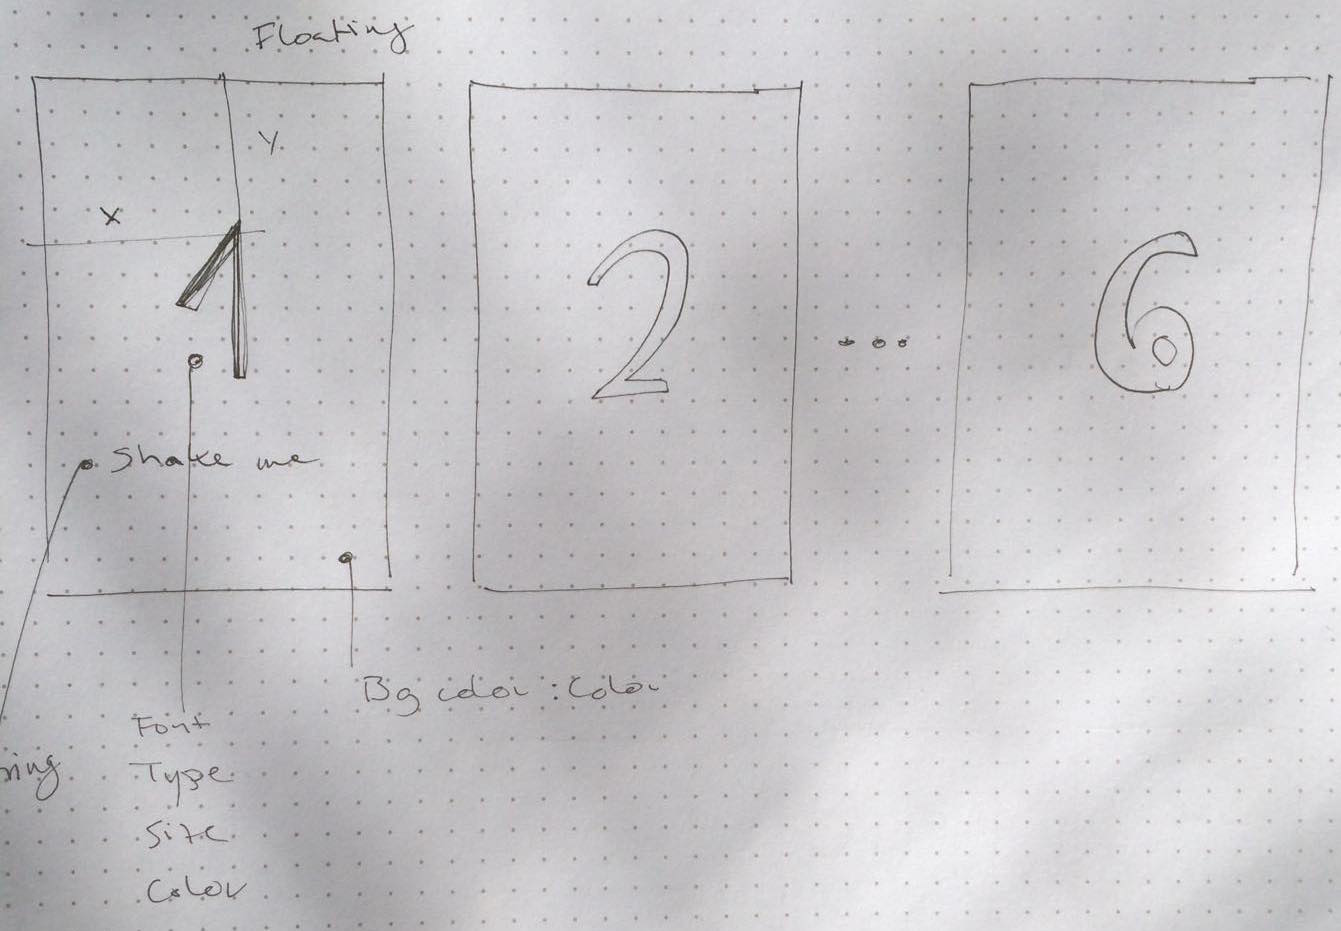 Floating
Y
X
1
2
...
6
Shake me
Bg color : Color
Font
Type
Size
Color